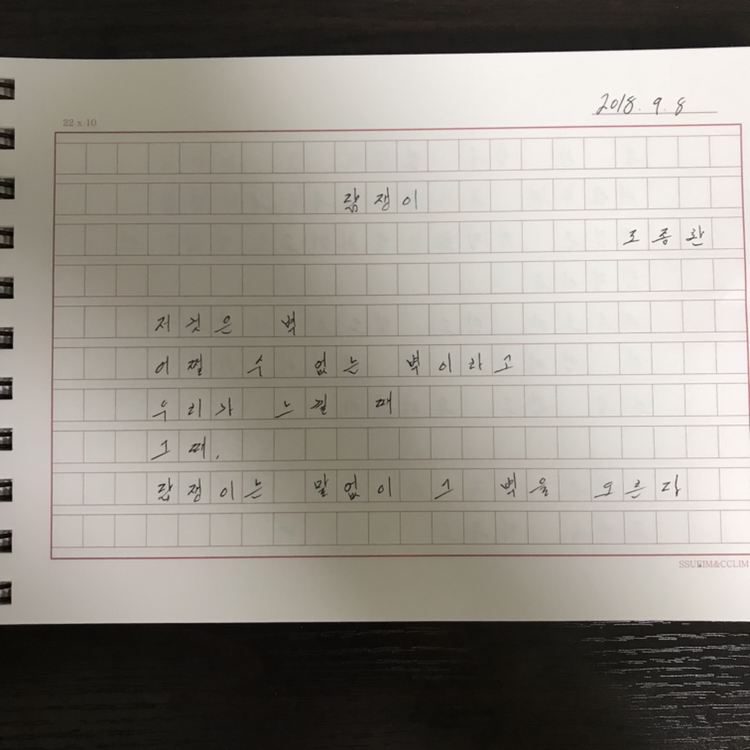 2018. 9. 8
22 x 10
담쟁이
도종환
저것은 벽
어쩔 수 없는 벽이라고
우리가 느낄 때
그때,
담쟁이는 말없이 그 벽을 오른다
SSUKIM&CCLIM